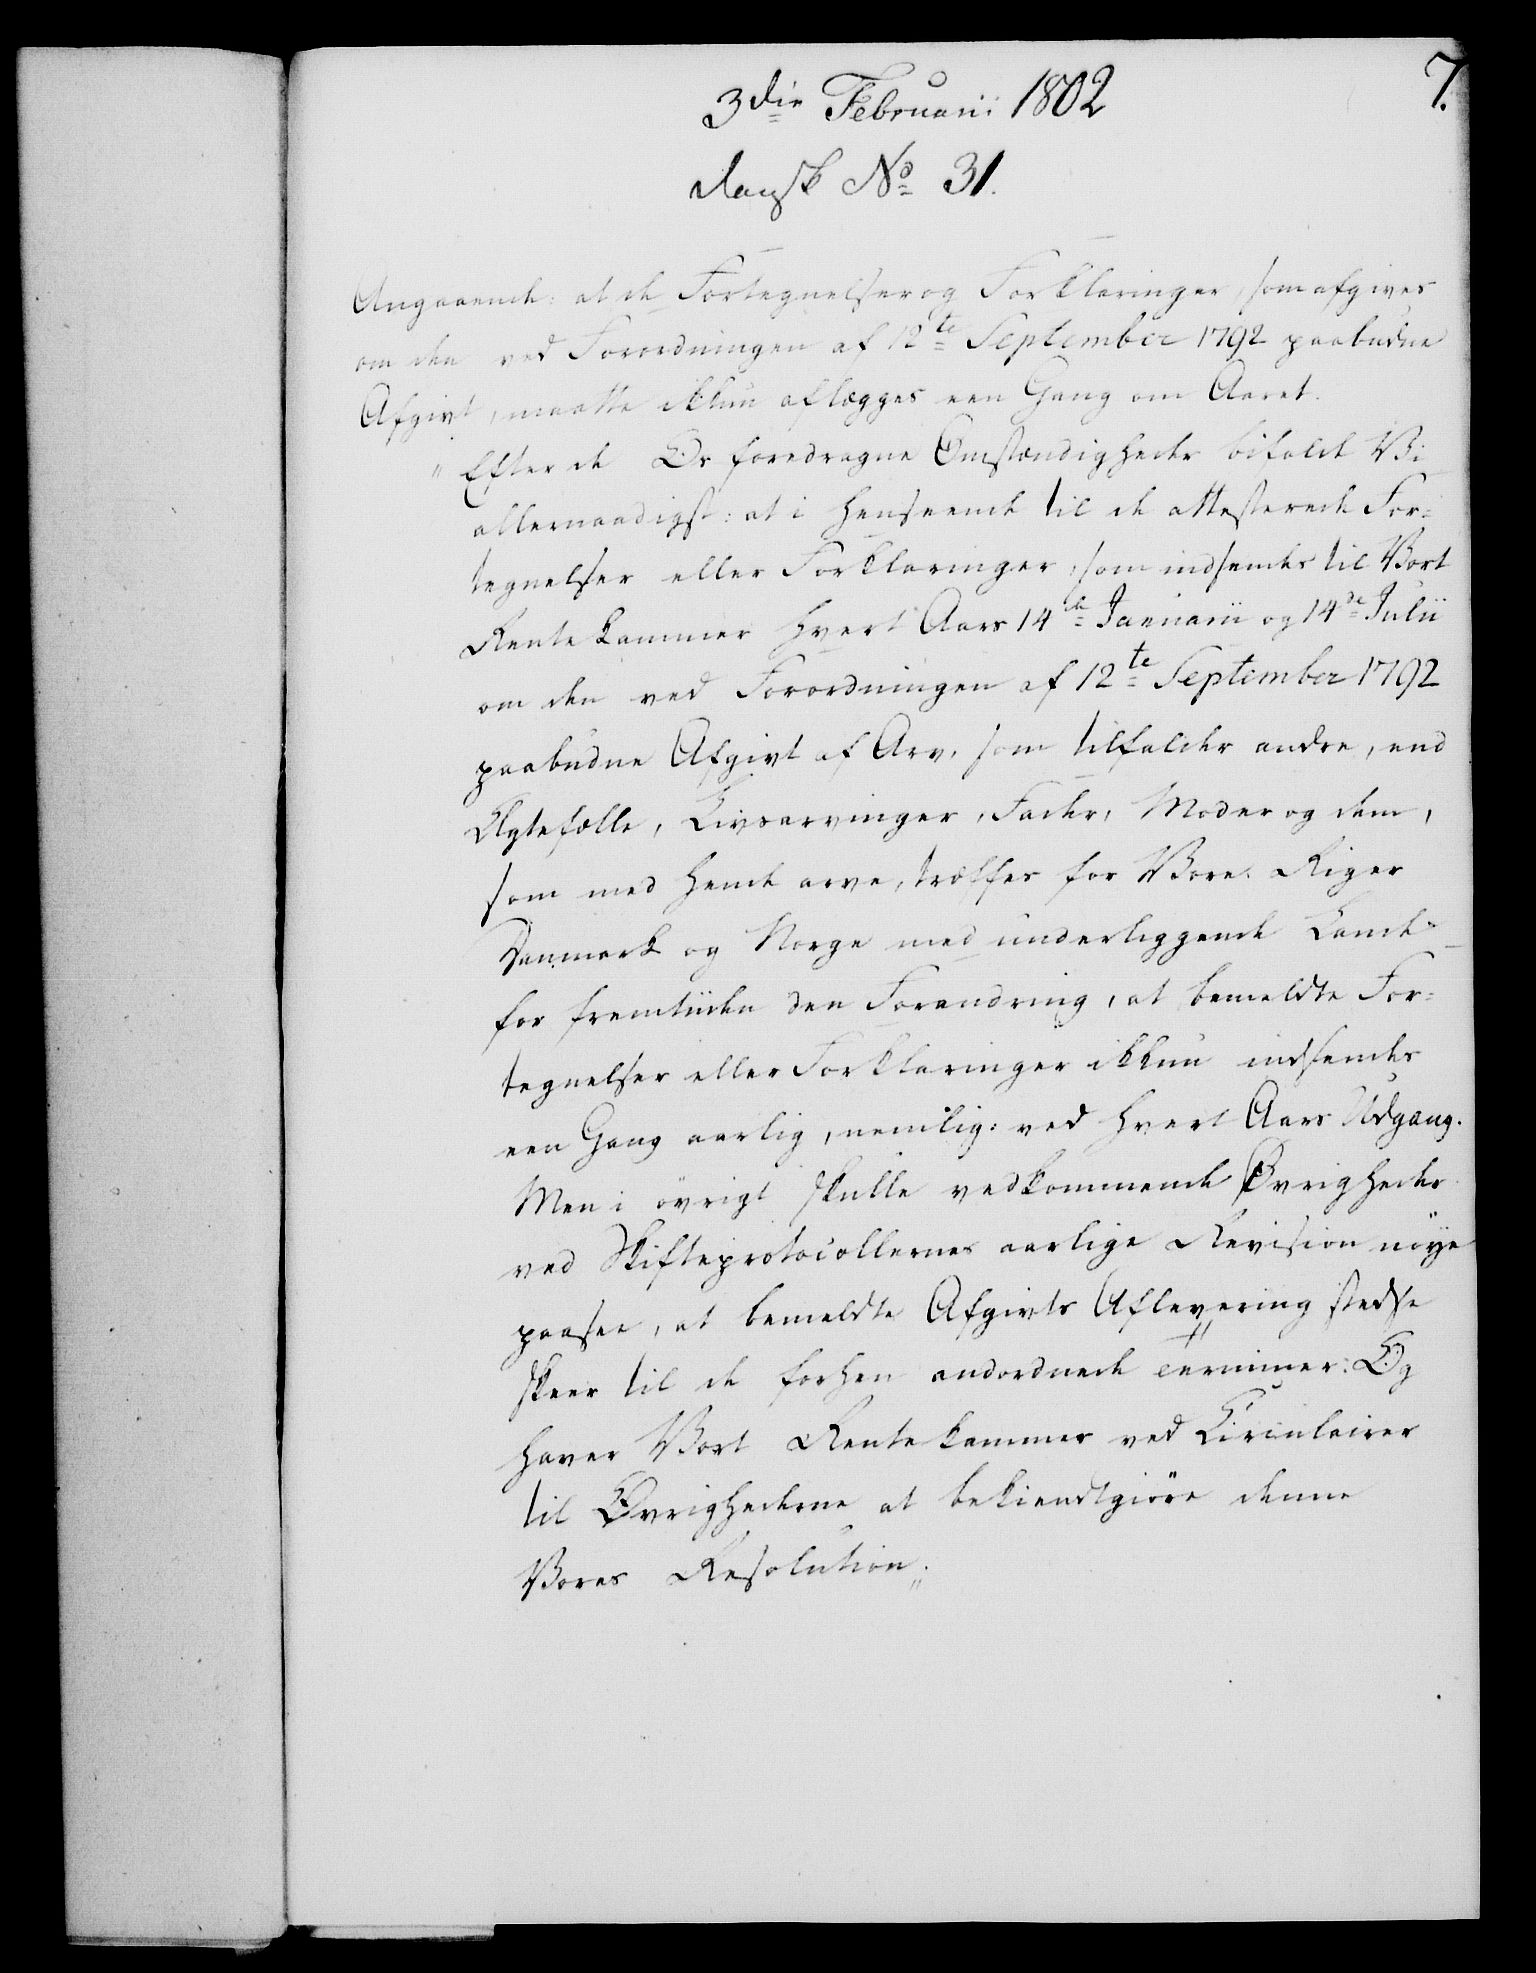 7.
3die Februarii 1802
dansk No 31.
Angaaende: at de Fortegnelser og Forklaringer, som afgives
om den ved Forordningen af 12te September 1792 paabudne
Afgivt, maatte ikkun aflægges een Gang om Aaret.
"Efter de Os foredragne Omstændigheder bifalde Vi
allernaadigst: at i Henseende til de attesterede For-
tegnelser eller Forklaringer, som indsendes til Vort
Rentekammer hvert Aars 14de Januarii og 14de Julii
om den ved Forordningen af 12te September 1792
paabudne Afgivt af Arv, som tilfalder andre, end
Ægtefælle, Livsarvinger, Fader, Moder og dem,
som med hende arve, træffes for Vore Riger
Danmark og Norge med underliggende Lande
for fremtiiden den Forandring, at bemeldte For-
tegnelser eller Forklaringer ikkun indsendes
een Gang aarlig, nemlig: ved hvert Aars Udgang.
Men i övrigt skulle vedkommende Øvrigheder
ved Skifteprotocollernes aarlige Revision nöye
paasee, at bemeldte Afgivts Aflevering stedse
skeer til de forhen andordnede Terminer: Og
haver Vort Rentekammer ved Circulairer
til Øvrighederne at bekiendtgiöre denne
Vores Resolution."